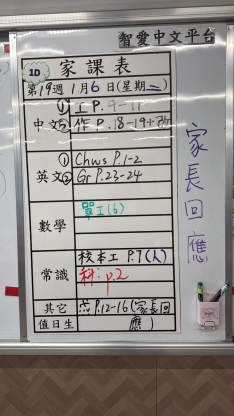 智愛中文平台
1D 家課表
第19週 1月6日(星期二)
中文 ① 工 P.9-11
② 作 P.18-19+
英文 ① Chws P.1-2
② Gr P.23-24
數學 單工(6)
常識 校本工 P.7(人)
科: p.2
其它 P.12-16(家長回應)
值日生
家長回應